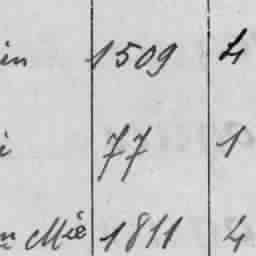 in 1509 4
i 77 1
n Mie 1811 4